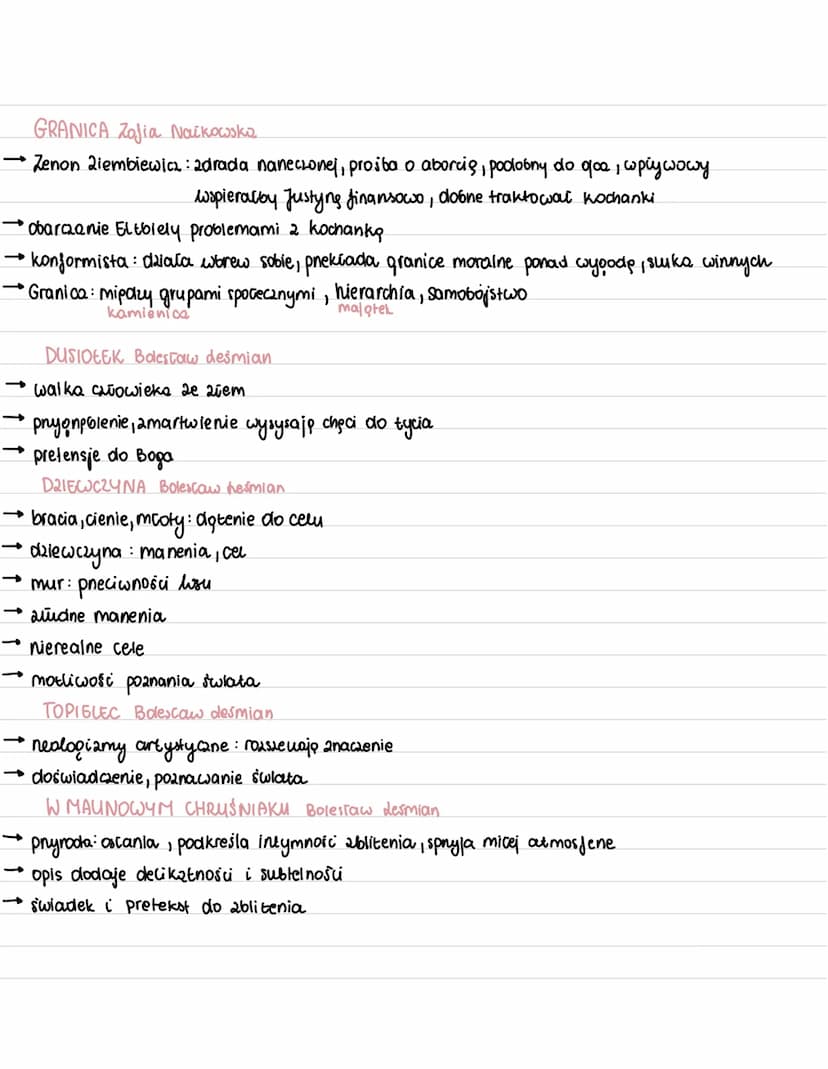 GRANICA Zofia Nałkowska
→ Zenon Ziembiewicz: zdrada narzeczonej, prośba o aborcję, podobny do ojca, wpływowy
wspierałby Justynę finansowo, dobrze traktować kochanki
→ obarczanie Elżbiety problemami z kochanką
→ konformista: działa wbrew sobie, przekłada granice moralne ponad wygodę, szuka winnych
→ Granica: między grupami społecznymi, hierarchia, samobójstwo
kamienica majątek
DUSIOŁEK Bolesław Leśmian
→ walka człowieka ze złem
→ przygnębienie, zmartwienie wysysają chęci do życia
→ pretensje do Boga
DZIEWCZYNA Bolesław Leśmian
→ bracia, cienie, młoty: dążenie do celu
→ dziewczyna: marzenia, cel
→ mur: przeciwności losu
→ złudne marzenia
→ nierealne cele
→ możliwość poznania świata
TOPIELEC Bolesław Leśmian
→ neologizmy artystyczne: rozszerzają znaczenie
→ doświadczenie, poznawanie świata
W MALINOWYM CHRUŚNIAKU Bolesław Leśmian
→ przyroda: osłania, podkreśla intymność zbliżenia, sprzyja miłej atmosferze
→ opis dodaje delikatności i subtelności
→ świadek i pretekst do zbliżenia